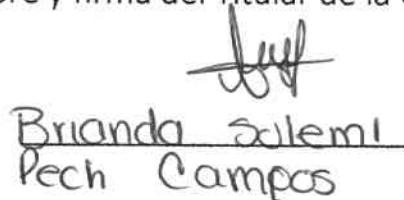 y firma del Titular de la
Brianda Salemi
Pech Campos